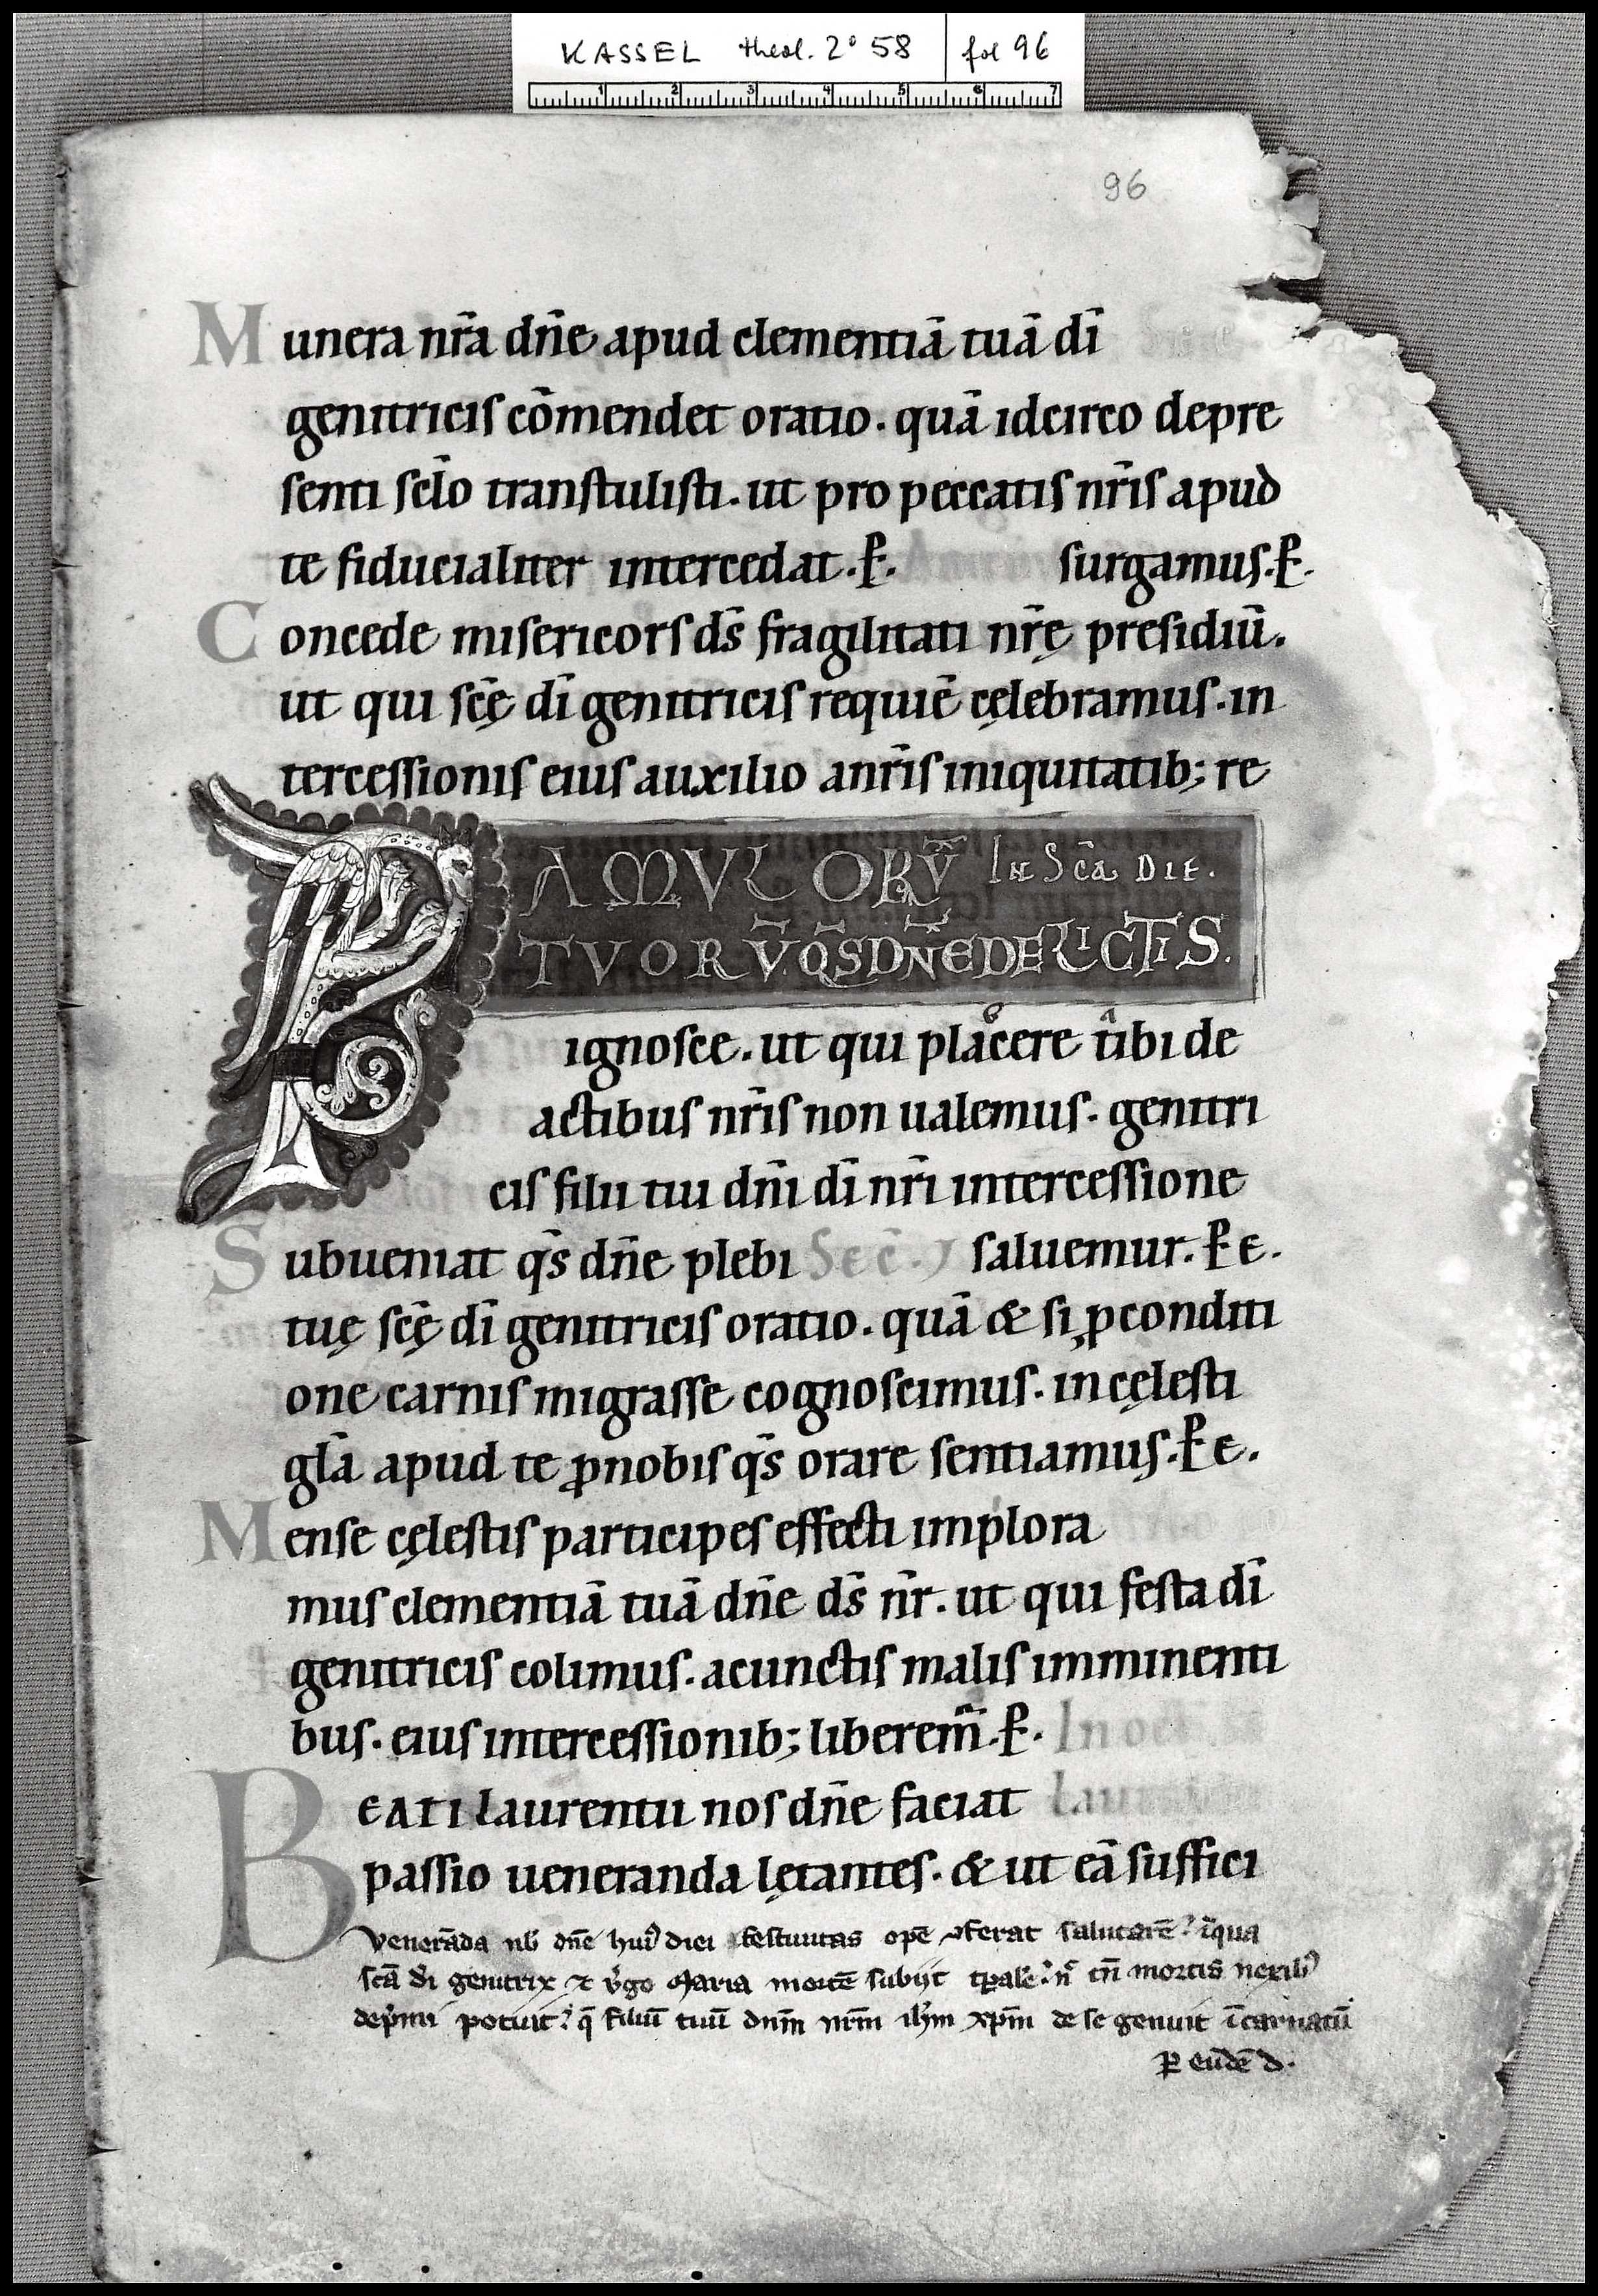 KASSEL theol. 2° 58 fol 96
1 2 3 4 5 6 7
96
Munera nr̄a dn̄e apud clementiā tuā dī
genitricis cōmendet oratio. quā idcirco depre
senti scl̄o transtulisti. ut pro peccatis nr̄is apud
te fiducialiter intercedat. P̄. surgamus. P̄.
Concede misericors ds̄ fragilitati nr̄ę presidiū.
ut qui sc̄ę dī genitricis requiē cęlebramus. in
tercessionis eius auxilio anr̄is iniquitatib; re
FAMVLORV̄ IN Sc̄a DIE.
TVORV̄ Q̄S DN̄E DELICTIS.
ignosce. ut qui placere tibi de
actibus nr̄is non ualemus. genitri
cis filii tui dn̄i dī nr̄i intercessione
Subueniat qs̄ dn̄e plebi Sec̄. saluemur. P̄ e.
tuę sc̄ę dī genitricis oratio. quā & si ꝓ conditi
one carnis migrasse cognoscimus. in cęlesti
gl̄a apud te ꝓnobis qs̄ orare sentiamus. P̄ e.
Mense cęlestis participes effecti implora
mus clementiā tuā dn̄e ds̄ nr̄. ut qui festa dī
genitricis colimus. acunctis malis imminenti
bus. eius intercessionib; liberem̄. P̄. In oc
BEATI Laurentii nos dn̄e faciat Lau
passio ueneranda lętantes. & ut eā suffici
Venerāda nb̄ dn̄e huiꝰ diei festiuitas opē ꝯferat salutarē? ī qua
scā dī genitrix ⁊ v̊go Maria mortē subijt tꝑalē nͨ tn̄ mortis nexibꝰ
dep̄mi potuit? q̄ filiū tuū dnm̄ nrm̄ ihm̄ xpm̄ de se genuit īcarnatū
ꝑ eūdē d.